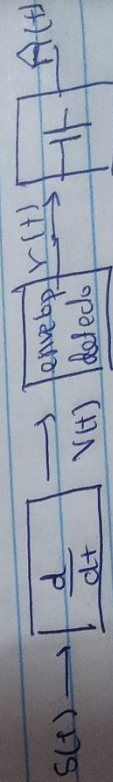 S(t) → d/dt → V(t) envelop detecto r(t) → m̂(t)